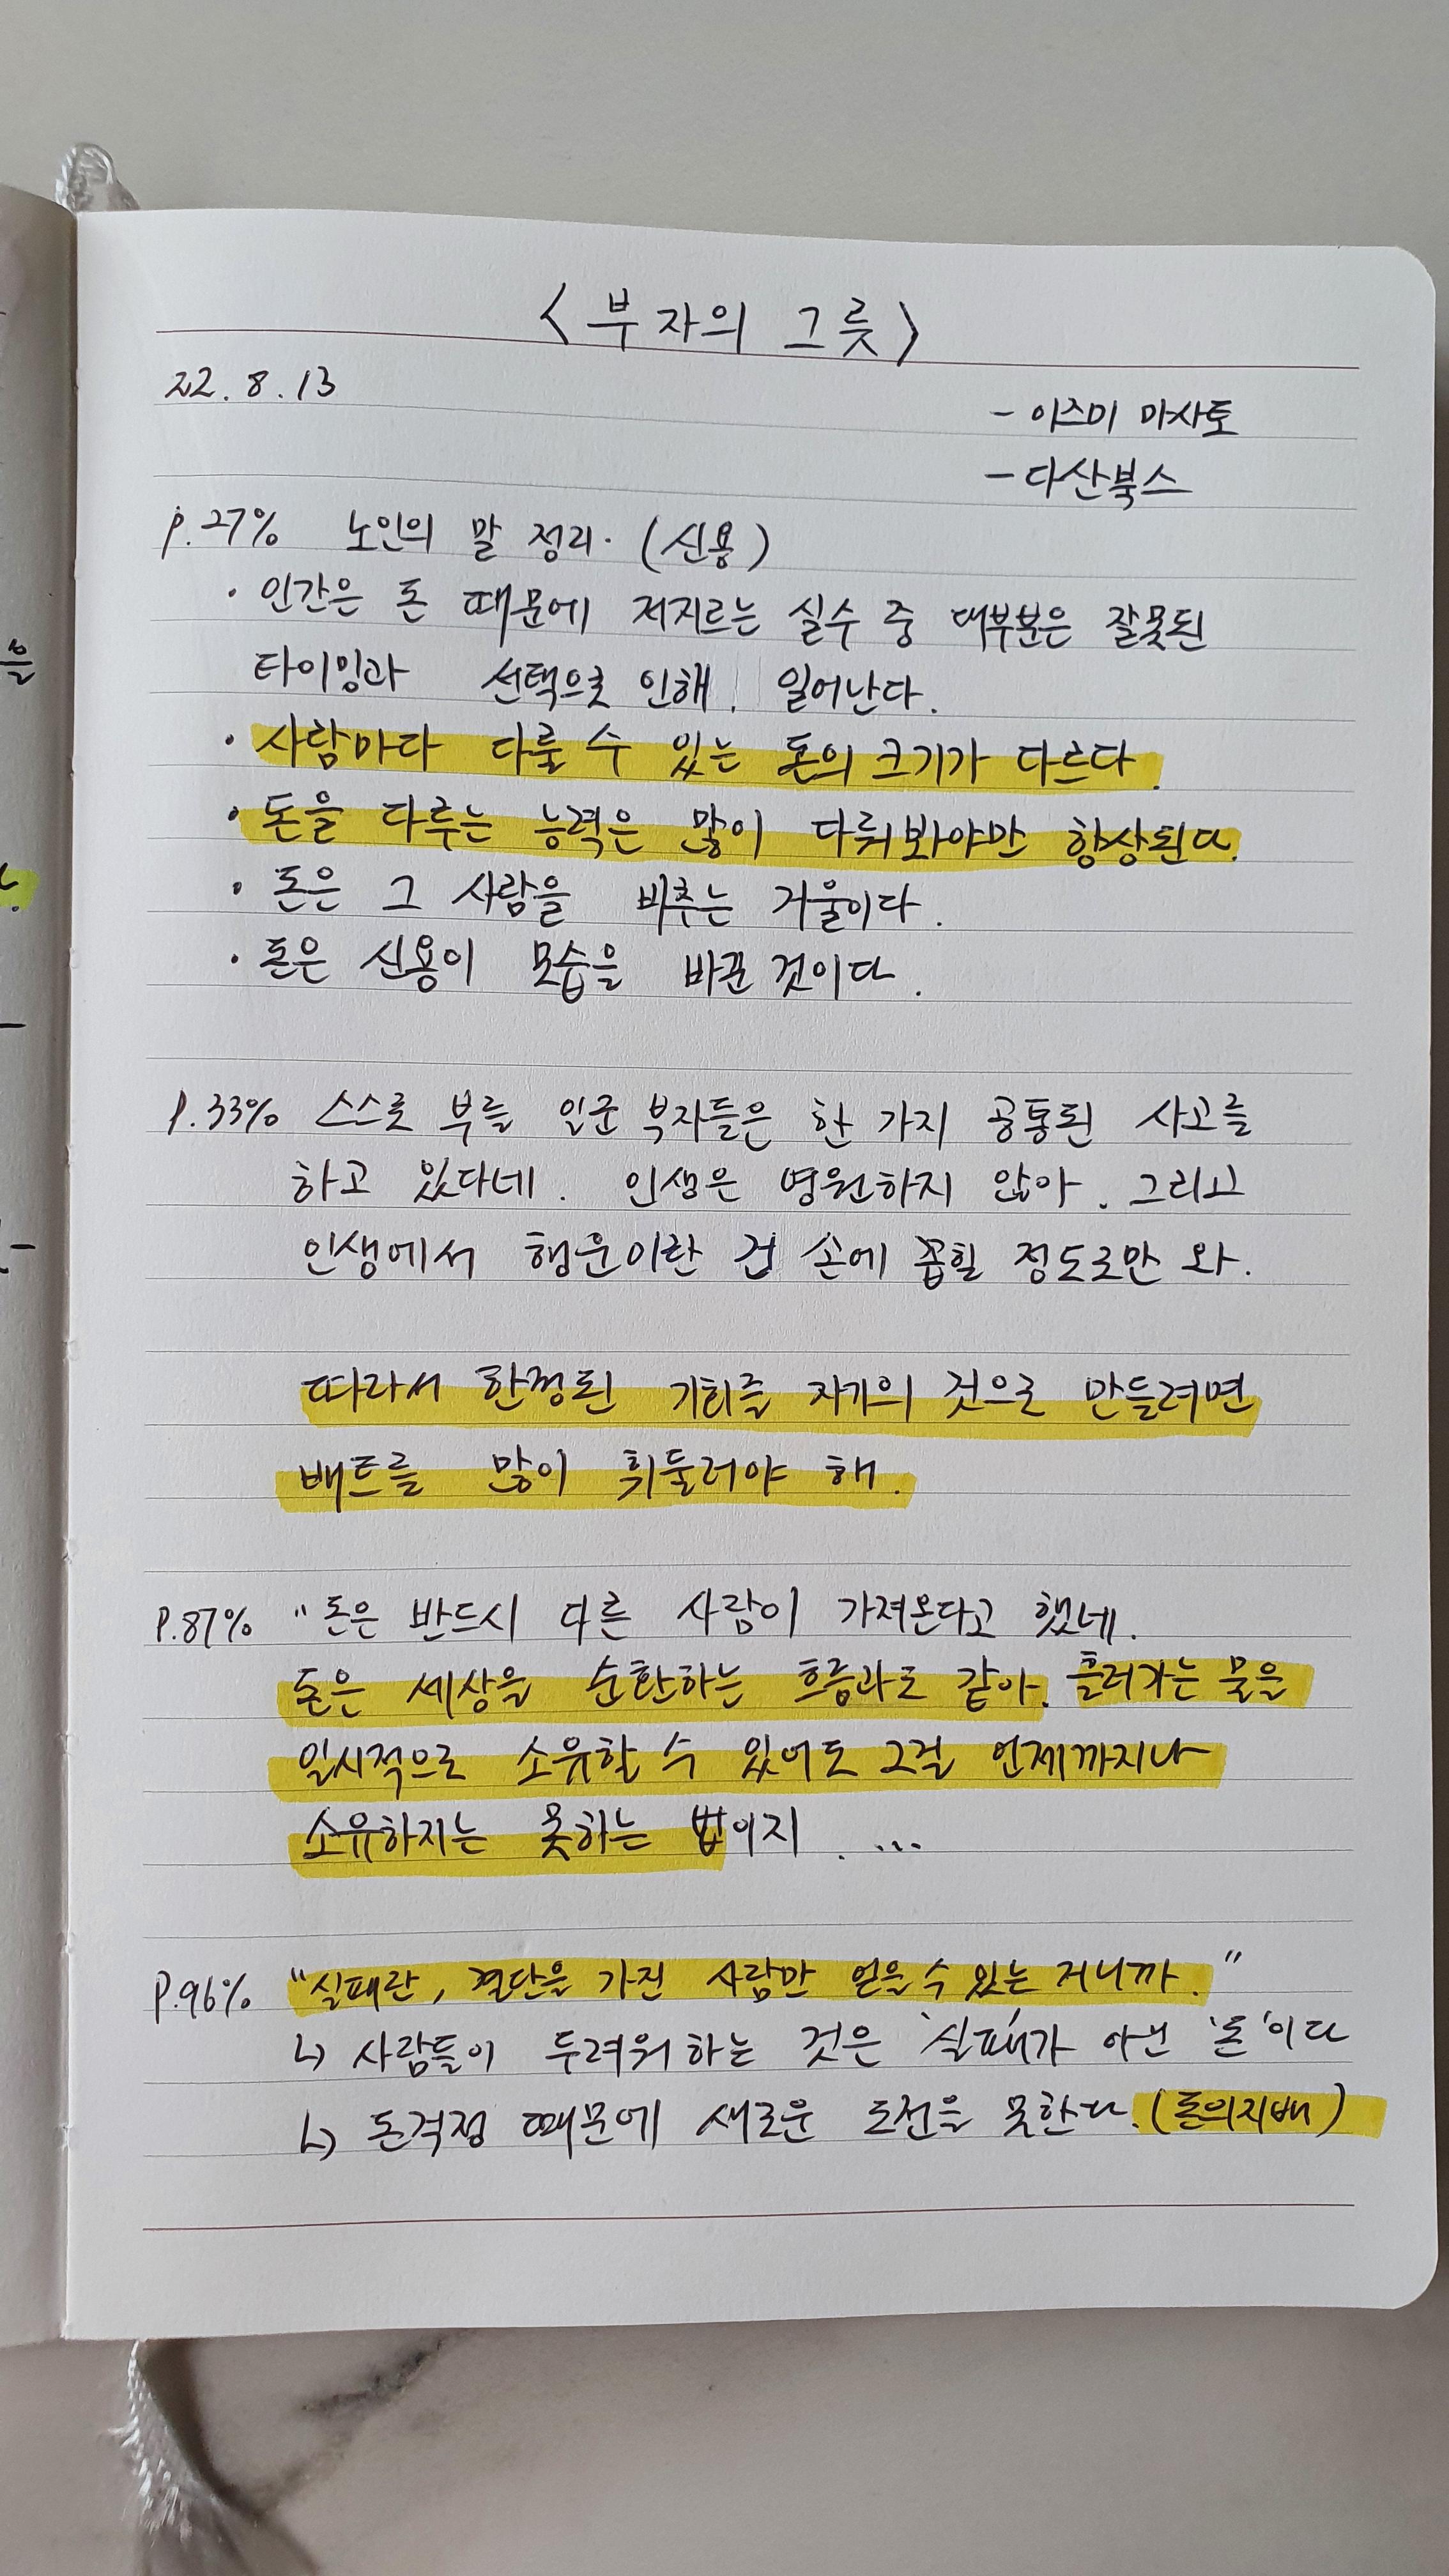 <부자의 그릇>
22. 8. 13
- 이즈미 마사토
- 다산북스
p.27% 노인의 말 정리. (신용)
· 인간은 돈 때문에 저지르는 실수 중 대부분은 잘못된
타이밍과 선택으로 인해 일어난다.
· 사람마다 다룰 수 있는 돈의 크기가 다르다.
· 돈을 다루는 능력은 많이 다뤄봐야만 향상된다.
· 돈은 그 사람을 비추는 거울이다.
· 돈은 신용이 모습을 바꾼 것이다.
P.33% 스스로 부를 일군 부자들은 한 가지 공통된 사고를
하고 있다네. 인생은 영원하지 않아. 그리고
인생에서 행운이란 건 손에 꼽힐 정도로만 와.
따라서 한정된 기회를 자기의 것으로 만들려면
배트를 많이 휘둘러야 해.
P.87% "돈은 반드시 다른 사람이 가져온다고 했네.
돈은 세상을 순환하는 흐름과도 같아. 흘러가는 물을
일시적으로 소유할 수 있어도 그걸 언제까지나
소유하지는 못하는 법이지. ...
P.96% "실패란, 결단을 가진 사람만 얻을 수 있는 거니까."
↳ 사람들이 두려워 하는 것은 '실패'가 아닌 '돈'이다
↳ 돈걱정 때문에 새로운 도전을 못한다. (돈의지배)
을